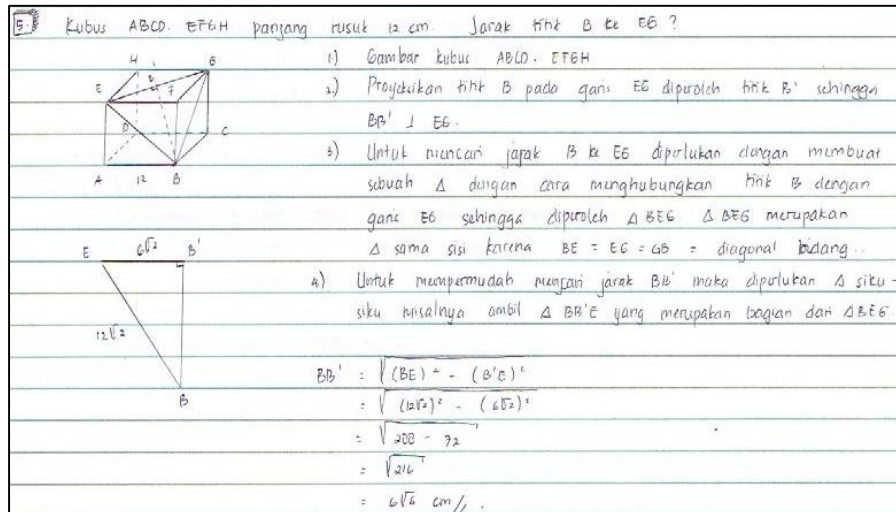 5. Kubus ABCD. EFGH panjang rusuk 12 cm. Jarak titik B ke EG ?
1) Gambar kubus ABCD. EFGH
2) Proyeksikan titik B pada garis EG diperoleh titik B' sehingga
BB' ⊥ EG.
3) Untuk mencari jarak B ke EG diperlukan dengan membuat
sebuah Δ dengan cara menghubungkan titik B dengan
garis EG sehingga diperoleh Δ BEG. Δ BEG merupakan
Δ sama sisi karena BE = EG = GB = diagonal bidang..
4) Untuk mempermudah mencari jarak BB' maka diperlukan Δ siku-
siku misalnya ambil Δ BB'E yang merupakan bagian dari ΔBEG
H G
E F
D C
A 12 B
E 6√2 B'
12√2
B
BB' = √(BE)² - (B'E)²
= √(12√2)² - (6√2)²
= √288 - 72
= √216
= 6√6 cm//.